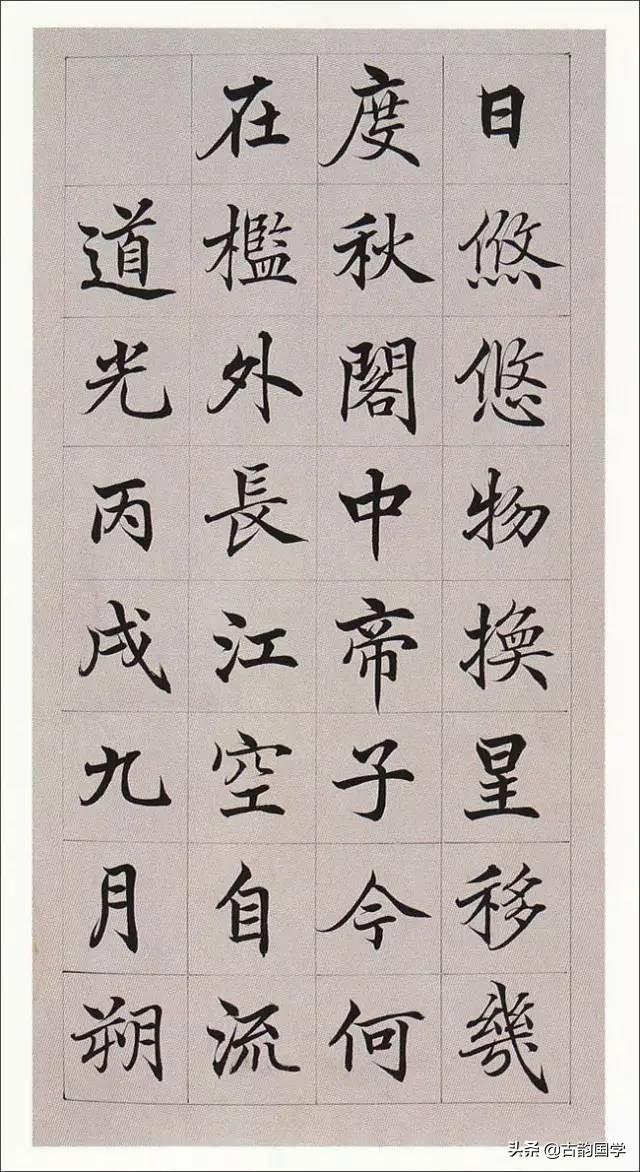 日悠悠物換星移幾
度秋閣中帝子今何
在檻外長江空自流
道光丙戌九月朔
头条 @古韵国学